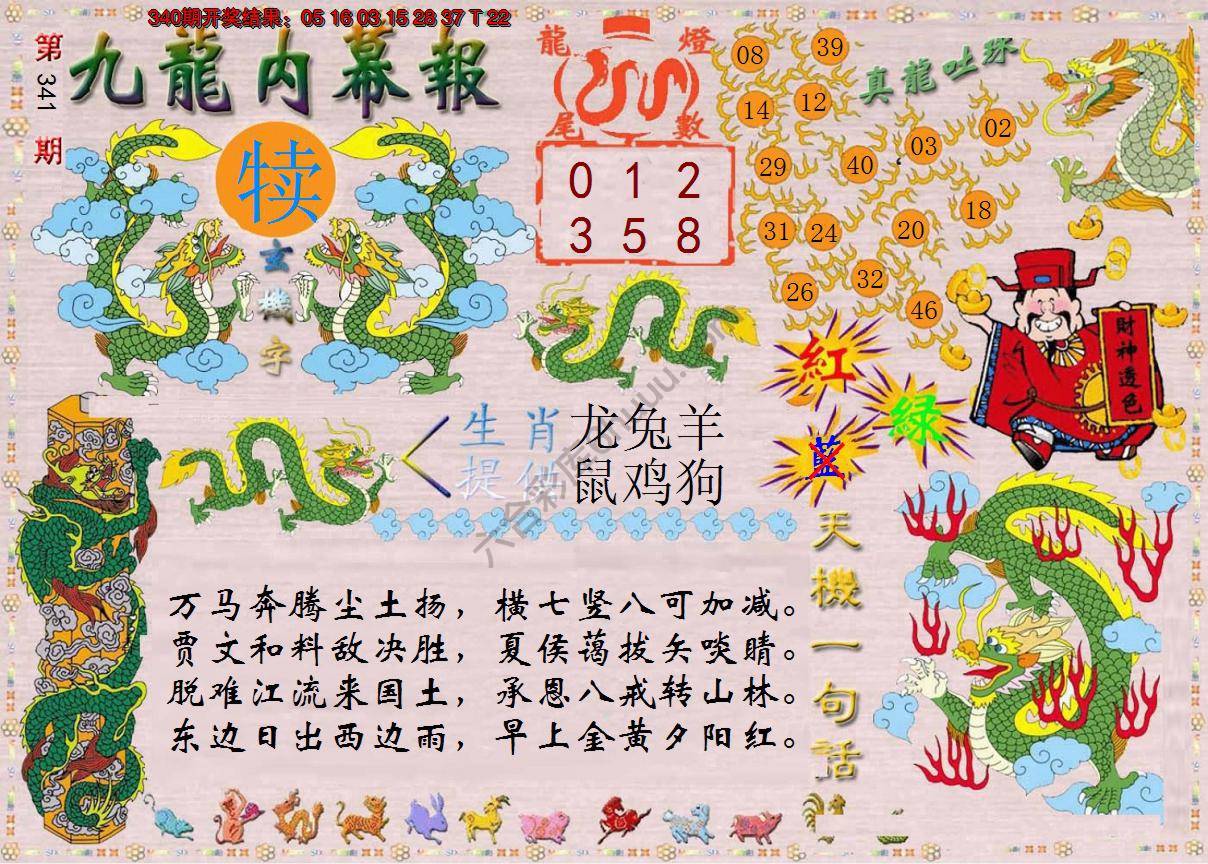 340期开奖结果：05 16 03 15 28 37 T 22
第341期
九龍内幕報
犊
玄機字
龍燈
尾數
0 1 2
3 5 8
真龍吐珠
08 39
14 12
29 40 03 02
31 24 20 18
26 32 46
財神透色
紅
綠
藍
生肖 龙兔羊
提供 鼠鸡狗
万马奔腾尘土扬，横七竖八可加减。
贾文和料敌决胜，夏侯蔼拔矢啖睛。
脱难江流来国土，承恩八戒转山林。
东边日出西边雨，早上金黄夕阳红。
天機一句話